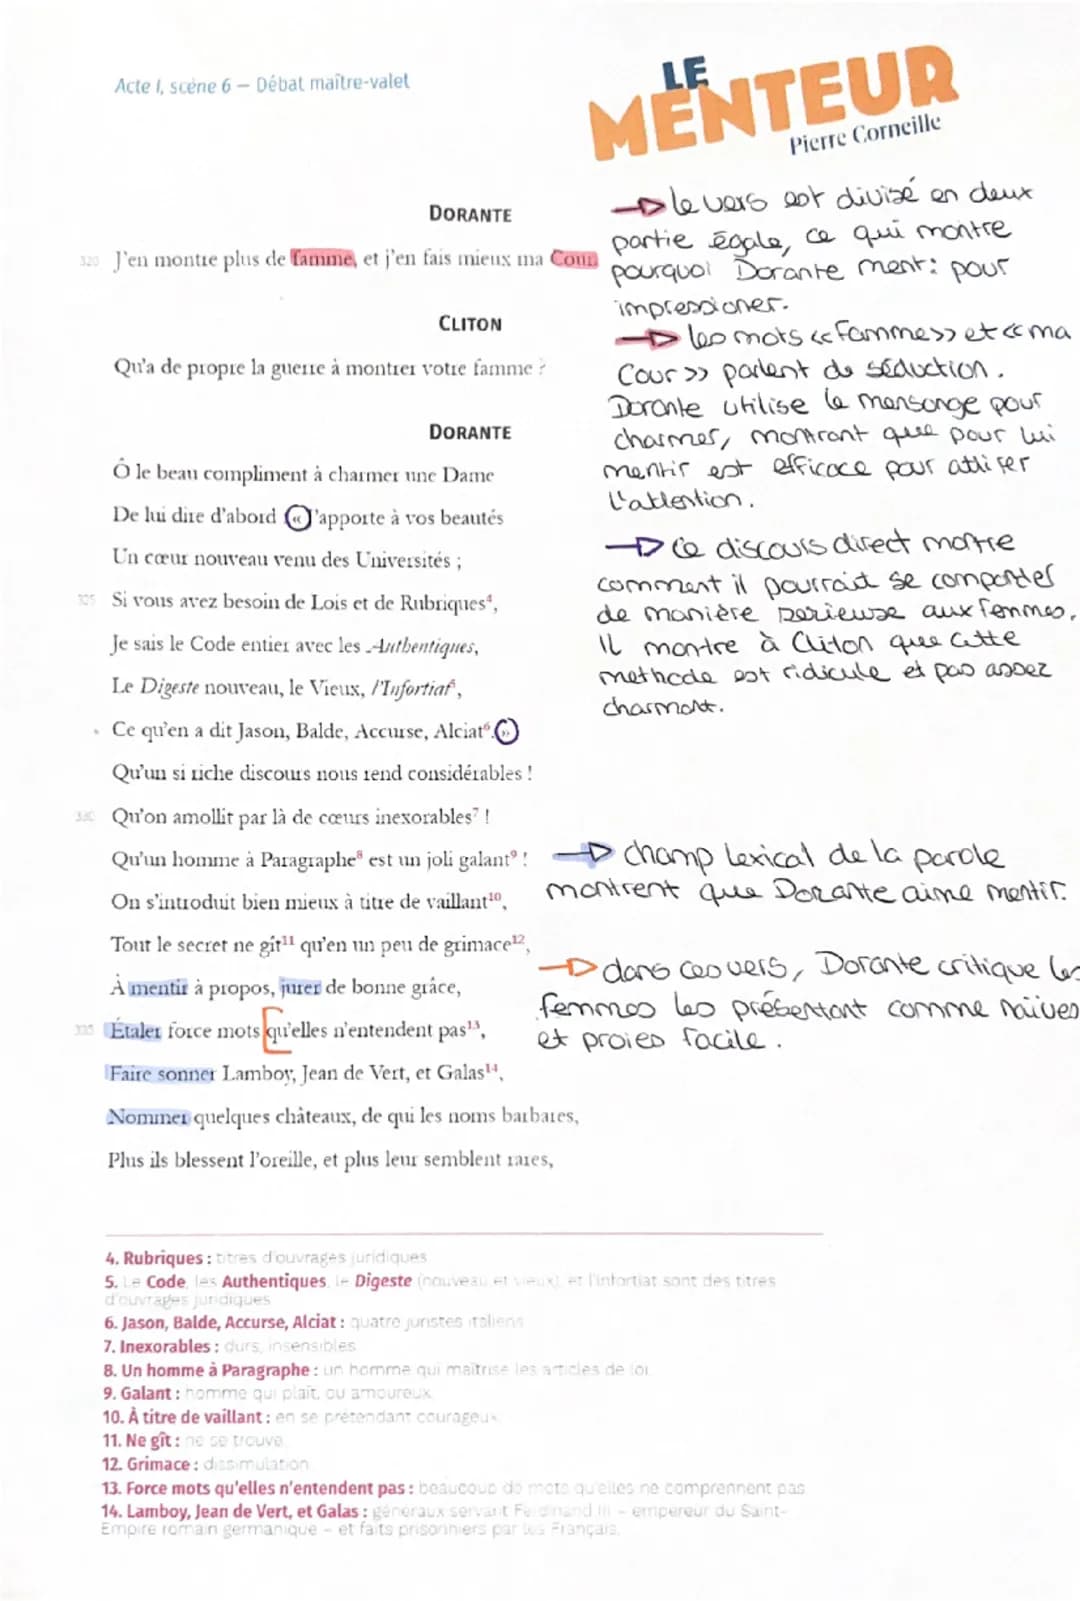 Acte I, scène 6 – Débat maître-valet
LE
MENTEUR
Pierre Corneille
DORANTE
320 J'en montre plus de famme, et j'en fais mieux ma Cour.
CLITON
Qu'a de propre la guerre à montrer votre famme ?
DORANTE
Ô le beau compliment à charmer une Dame
De lui dire d'abord « J'apporte à vos beautés
Un cœur nouveau venu des Universités ;
325 Si vous avez besoin de Lois et de Rubriques⁴,
Je sais le Code entier avec les Authentiques,
Le Digeste nouveau, le Vieux, l'Infortiat⁵,
Ce qu'en a dit Jason, Balde, Accurse, Alciat⁶. »
Qu'un si riche discours nous rend considérables !
330 Qu'on amollit par là de cœurs inexorables⁷ !
Qu'un homme à Paragraphe⁸ est un joli galant⁹ !
On s'introduit bien mieux à titre de vaillant¹⁰,
Tout le secret ne gît¹¹ qu'en un peu de grimace¹²,
À mentir à propos, jurer de bonne grâce,
335 Étaler force mots qu'elles n'entendent pas¹³,
Faire sonner Lamboy, Jean de Vert, et Galas¹⁴,
Nommer quelques châteaux, de qui les noms barbares,
Plus ils blessent l'oreille, et plus leur semblent rares,
→ le vers est divisé en deux
partie égale, ce qui montre
pourquoi Dorante ment : pour
impressioner.
→ les mots « Famme » et « ma
Cour » parlent de séduction.
Dorante utilise le mensonge pour
charmer, montrant que pour lui
mentir est efficace pour attirer
l'attention.
→ Ce discours direct montre
comment il pourrait se comporter
de manière serieuse aux femmes.
Il montre à Cliton que cette
methode est ridicule et pas assez
charmant.
→ champ lexical de la parole
montrent que Dorante aime mentir.
→ dans ces vers, Dorante critique les
femmes les présentant comme naïves
et proies facile.
4. Rubriques : titres d'ouvrages juridiques
5. Le Code, les Authentiques, le Digeste (nouveau et vieux), et l'infortiat sont des titres
d'ouvrages juridiques
6. Jason, Balde, Accurse, Alciat : quatre juristes italiens
7. Inexorables : durs, insensibles
8. Un homme à Paragraphe : un homme qui maîtrise les articles de loi
9. Galant : homme qui plaît, ou amoureux
10. À titre de vaillant : en se prétendant courageux
11. Ne gît : ne se trouve
12. Grimace : dissimulation
13. Force mots qu'elles n'entendent pas : beaucoup de mots qu'elles ne comprennent pas
14. Lamboy, Jean de Vert, et Galas : généraux servant Ferdinand III – empereur du Saint-
Empire romain germanique – et faits prisonniers par les Français.